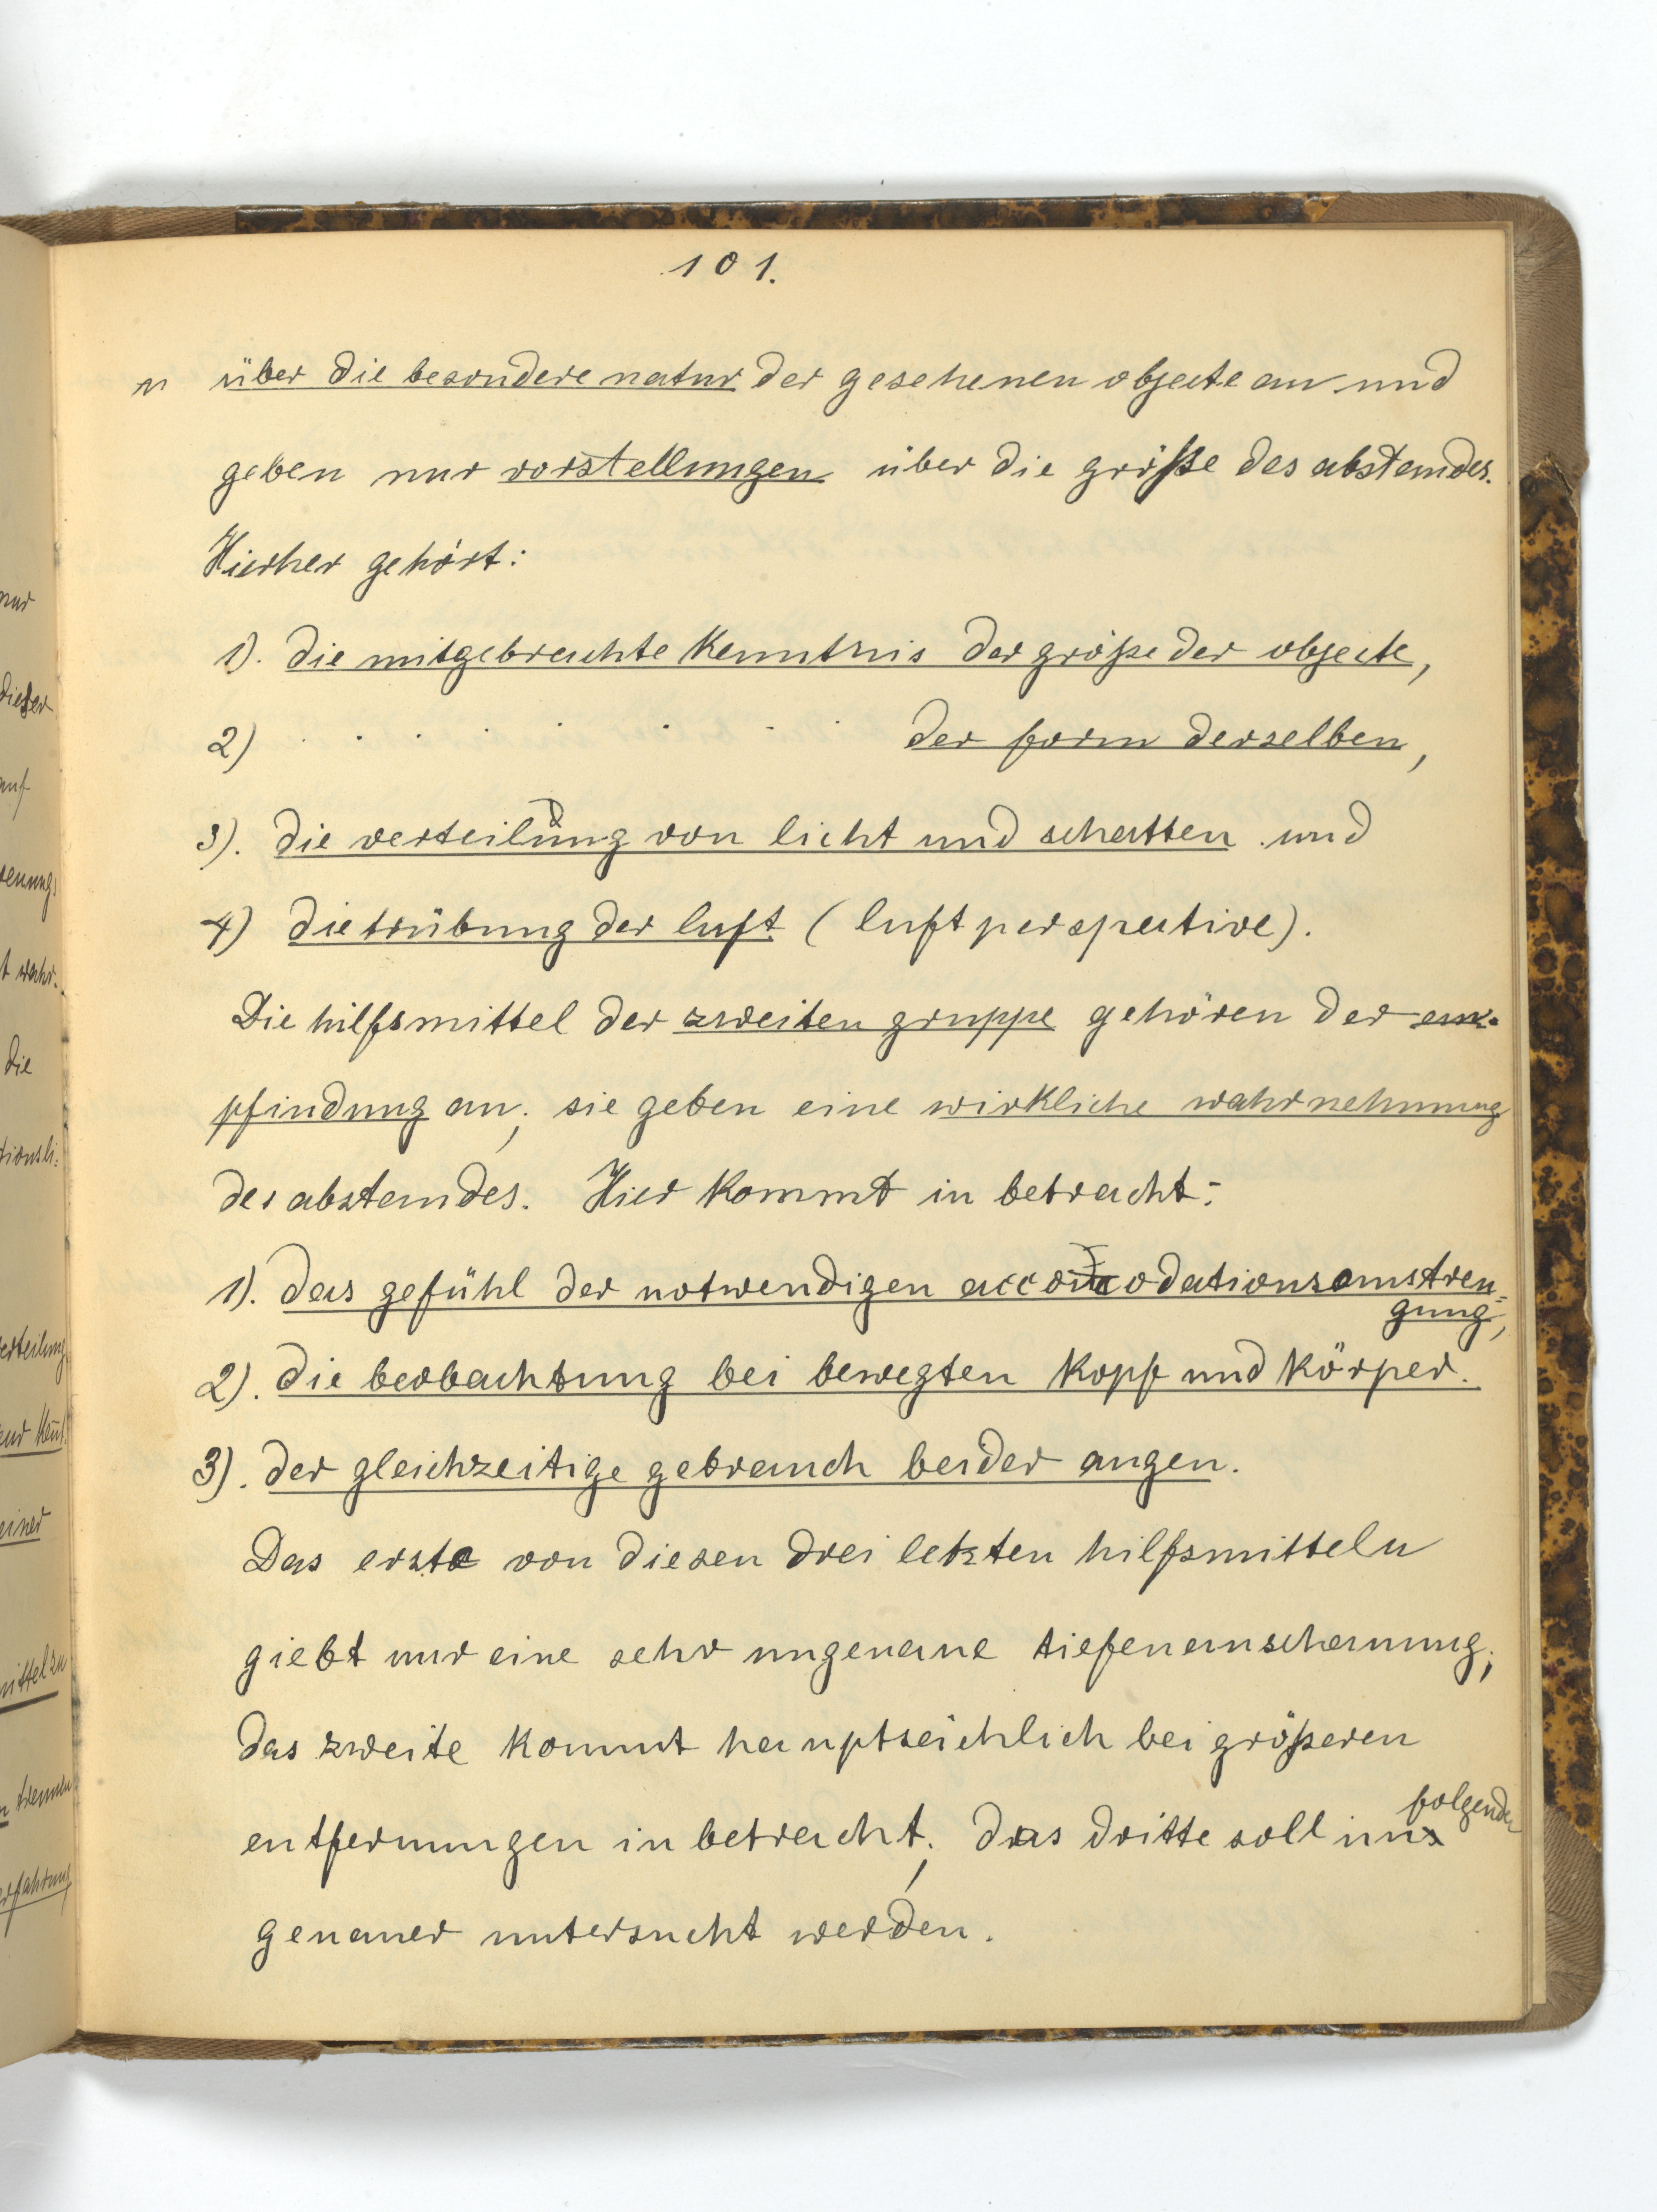 101.
n über die besondere natur der gesehenen objecte an und
geben nur vorstellungen über die größe des abstandes.
Hierher gehört:
1). die mitgebrachte Kenntnis der größe der objecte,
2) . . . . . . . . der form derselben,
3). die verteilung von licht und schatten und
4) die trübung der luft (luftperspective).
Die hilfsmittel der zweiten gruppe gehören der em-
pfindung an; sie geben eine wirkliche wahrnehmung
des abstandes. Hier kommt in betracht:
1). das gefühl der notwendigen accomodationsanstren=
gung,
2). die beobachtung bei bewegten Kopf und Körper.
3). der gleichzeitige gebrauch beider augen.
Das erste von diesen drei letzten hilfsmitteln
giebt nur eine sehr ungenaue tiefenanschauung;
das zweite kommt hauptsächlich bei größeren
folgenden
entfernungen in betracht; das dritte soll im
genauer untersucht werden.
nur
dieser
auf
t wahr-
die
tionsli=
erteilung
einer
mittel zu
trennen
erfahrung